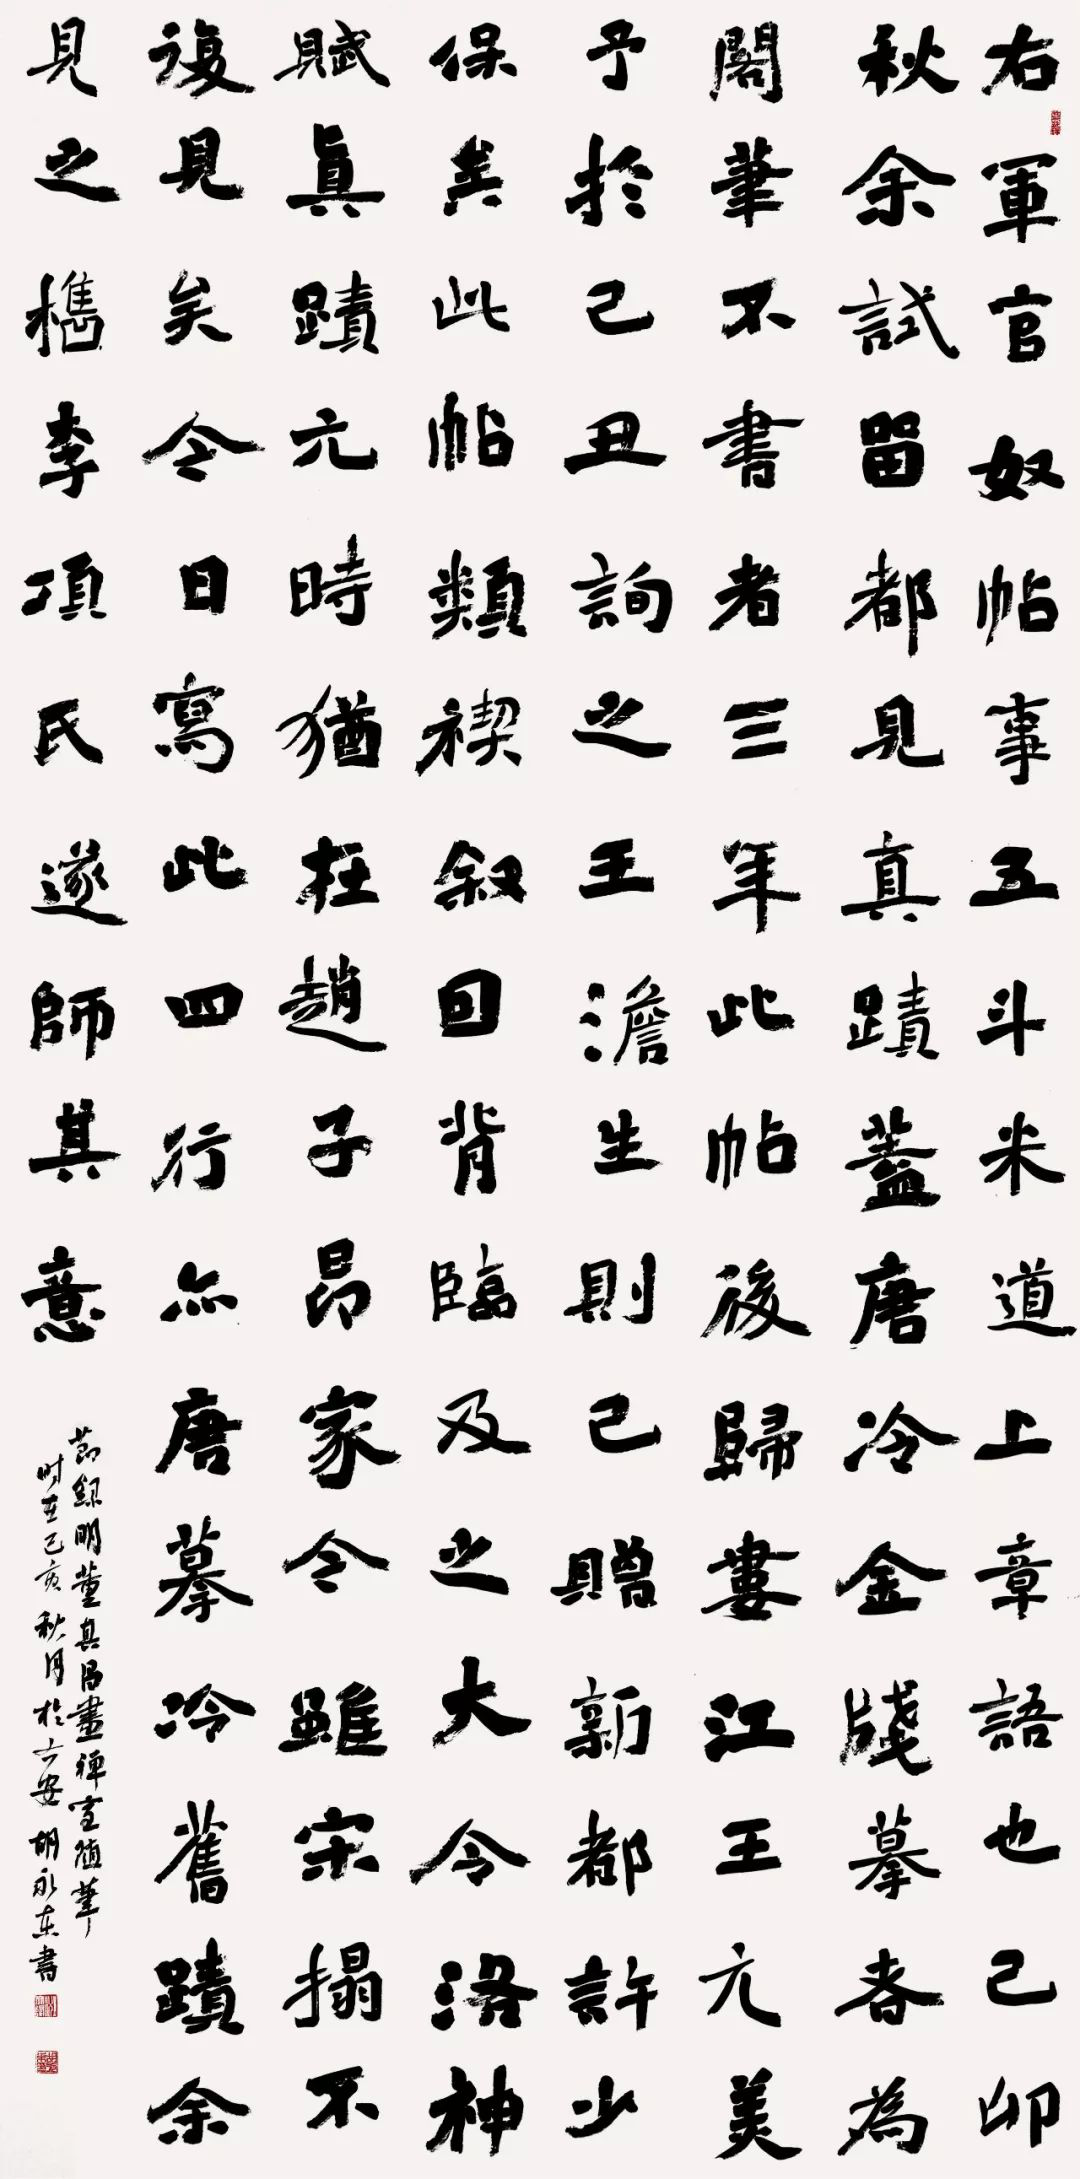 右軍官奴帖事五斗米道上章語也己卯
秋余試留都見真蹟蓋唐冷金牋摹者為
閣筆不書者三年此帖後歸婁江王元美
予於己丑詢之王澹生則已贈新都許少
保矣此帖類禊叙回背臨及之大令洛神
賦眞蹟元時猶在趙子昂家今雖宋搨不
復見矣今日寫此四行亦唐摹冷舊蹟余
見之檇李項氏遂師其意
節錄明董其昌畫禪室隨筆
时在己亥秋月於六安胡永东書